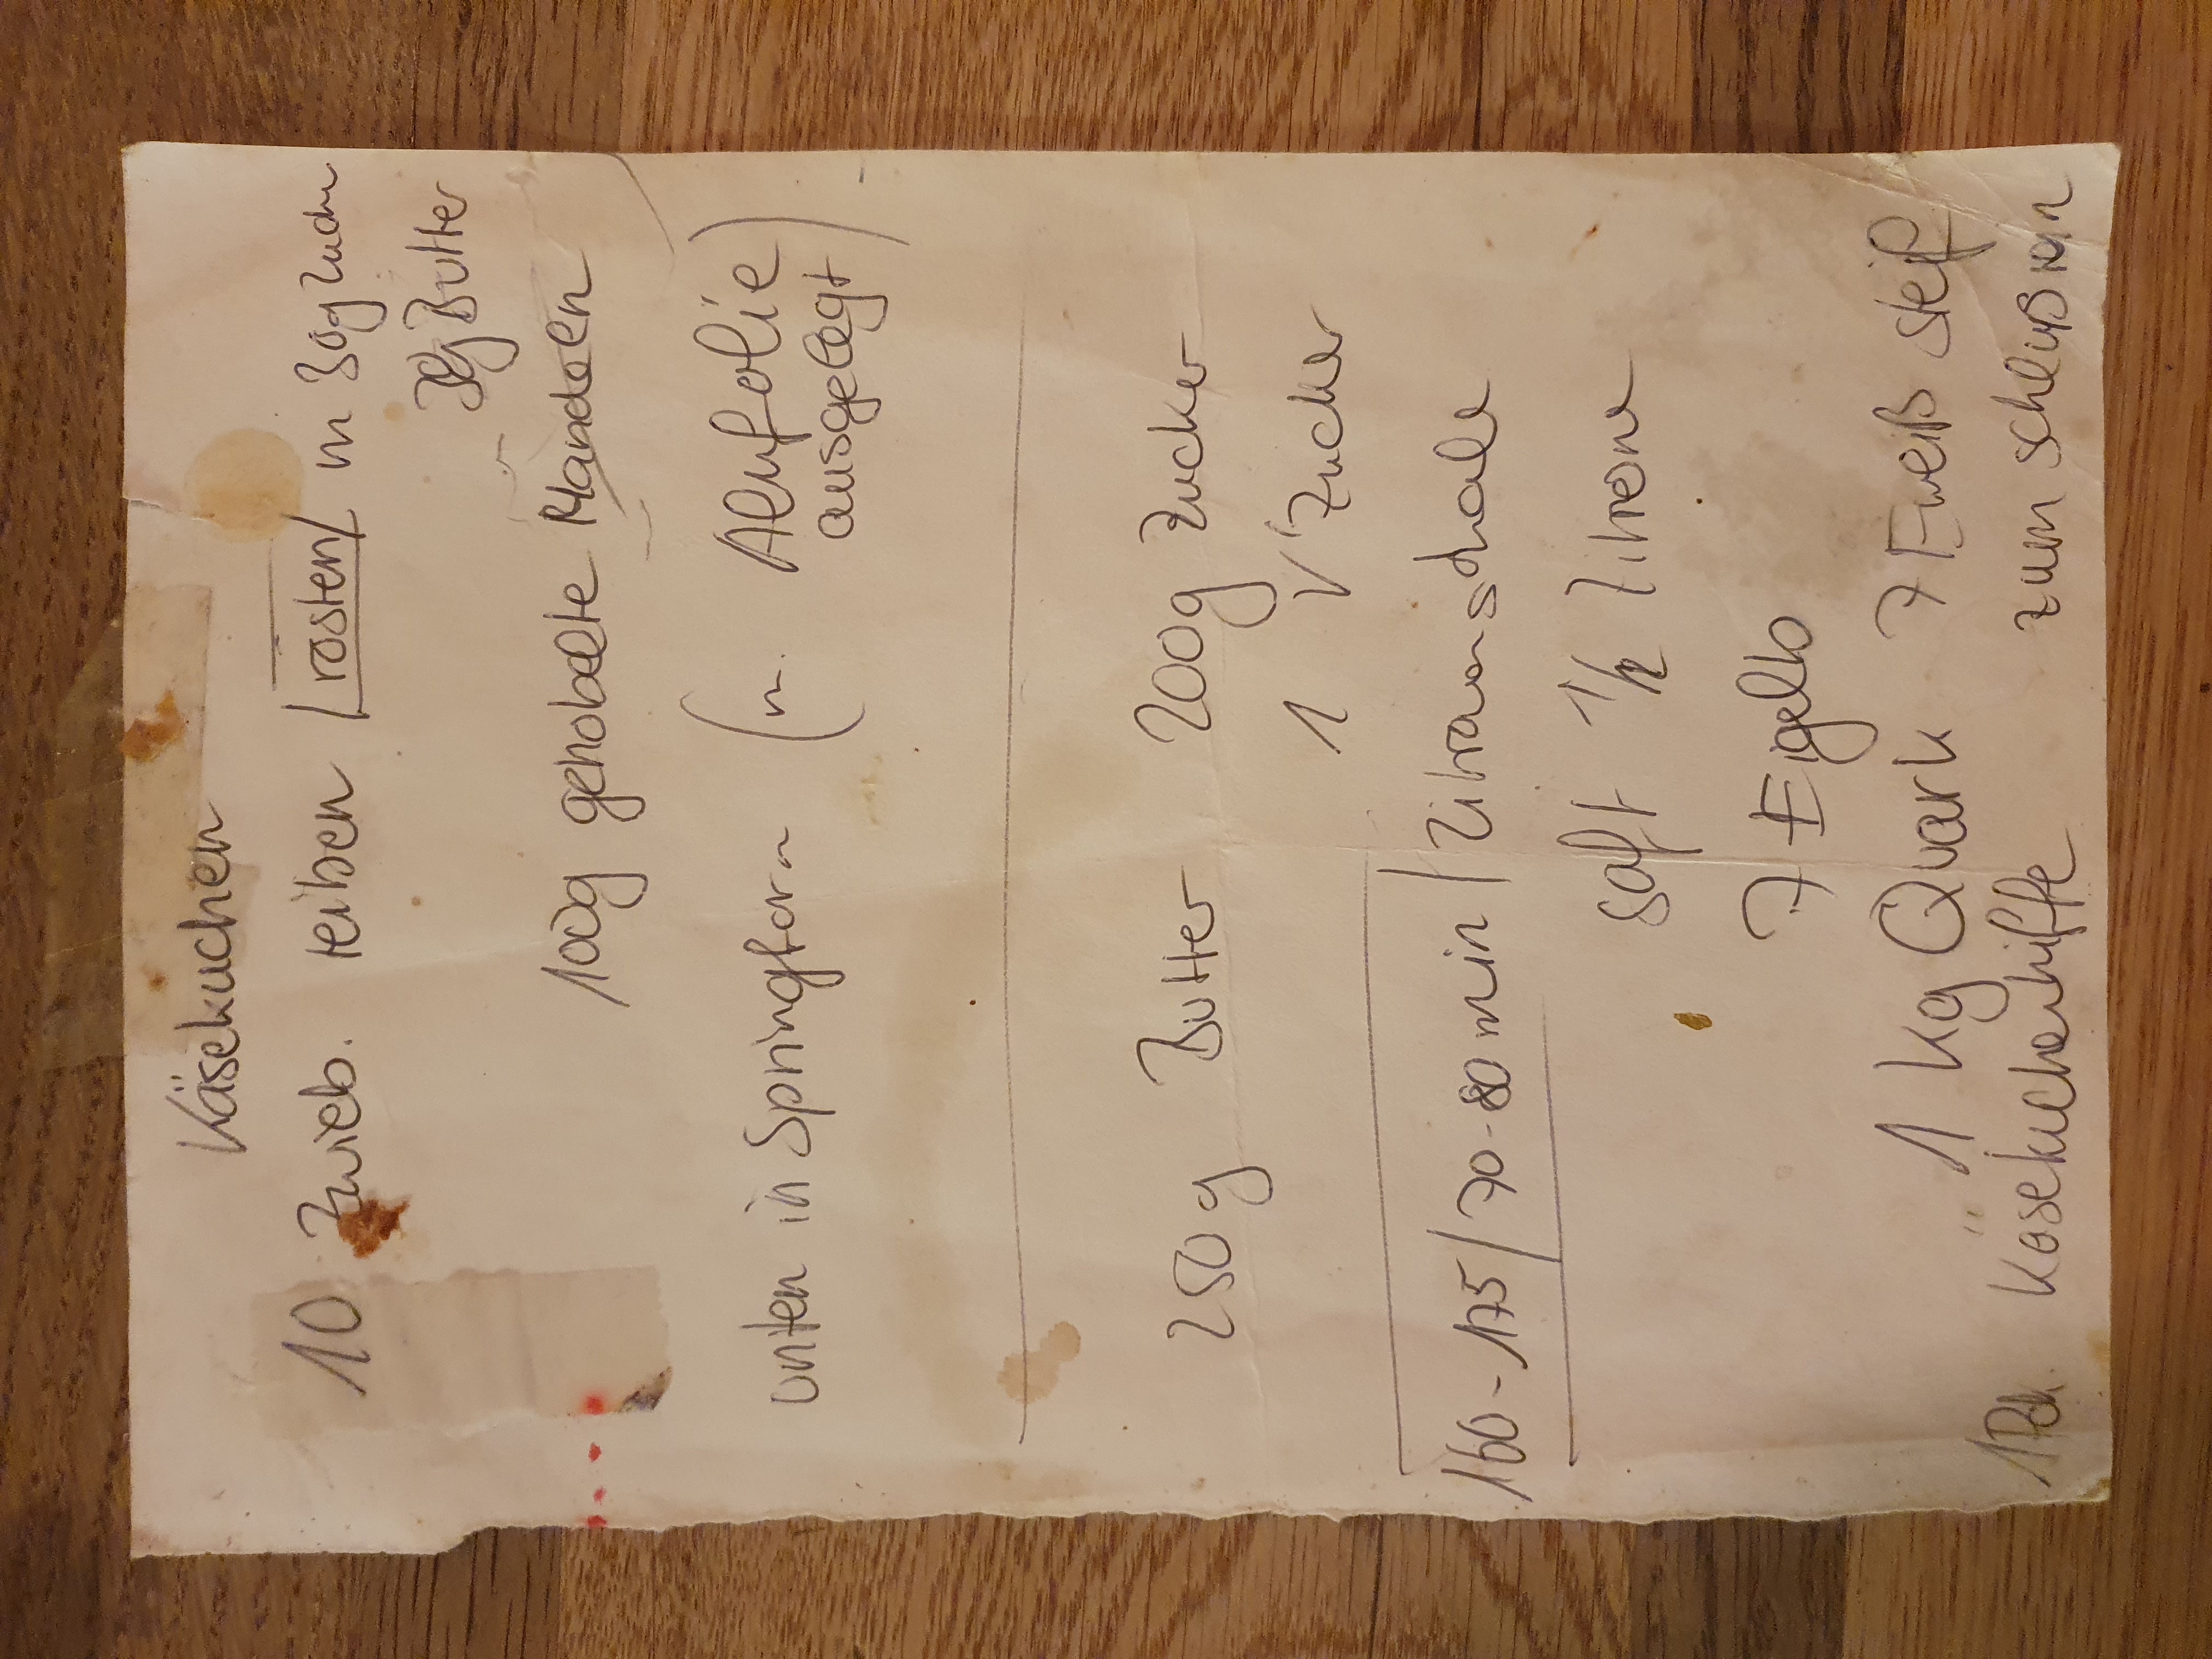 Käsekuchen
10 Zwieb. reiben rösten m 30g Zuck
Butter
100g gehobelte Mandeln
unten in Springform (m. Alufolie)
ausgelegt
250g Butter 200g Zucker
1 V Zucker
160-175/70-80 min Zitronenschale
saft 1/2 Zitrone
7 Eigelb
1 kg Quark 7 Eiweiß steif
1 Pck. Käsekuchenhilfe zum schluß rein